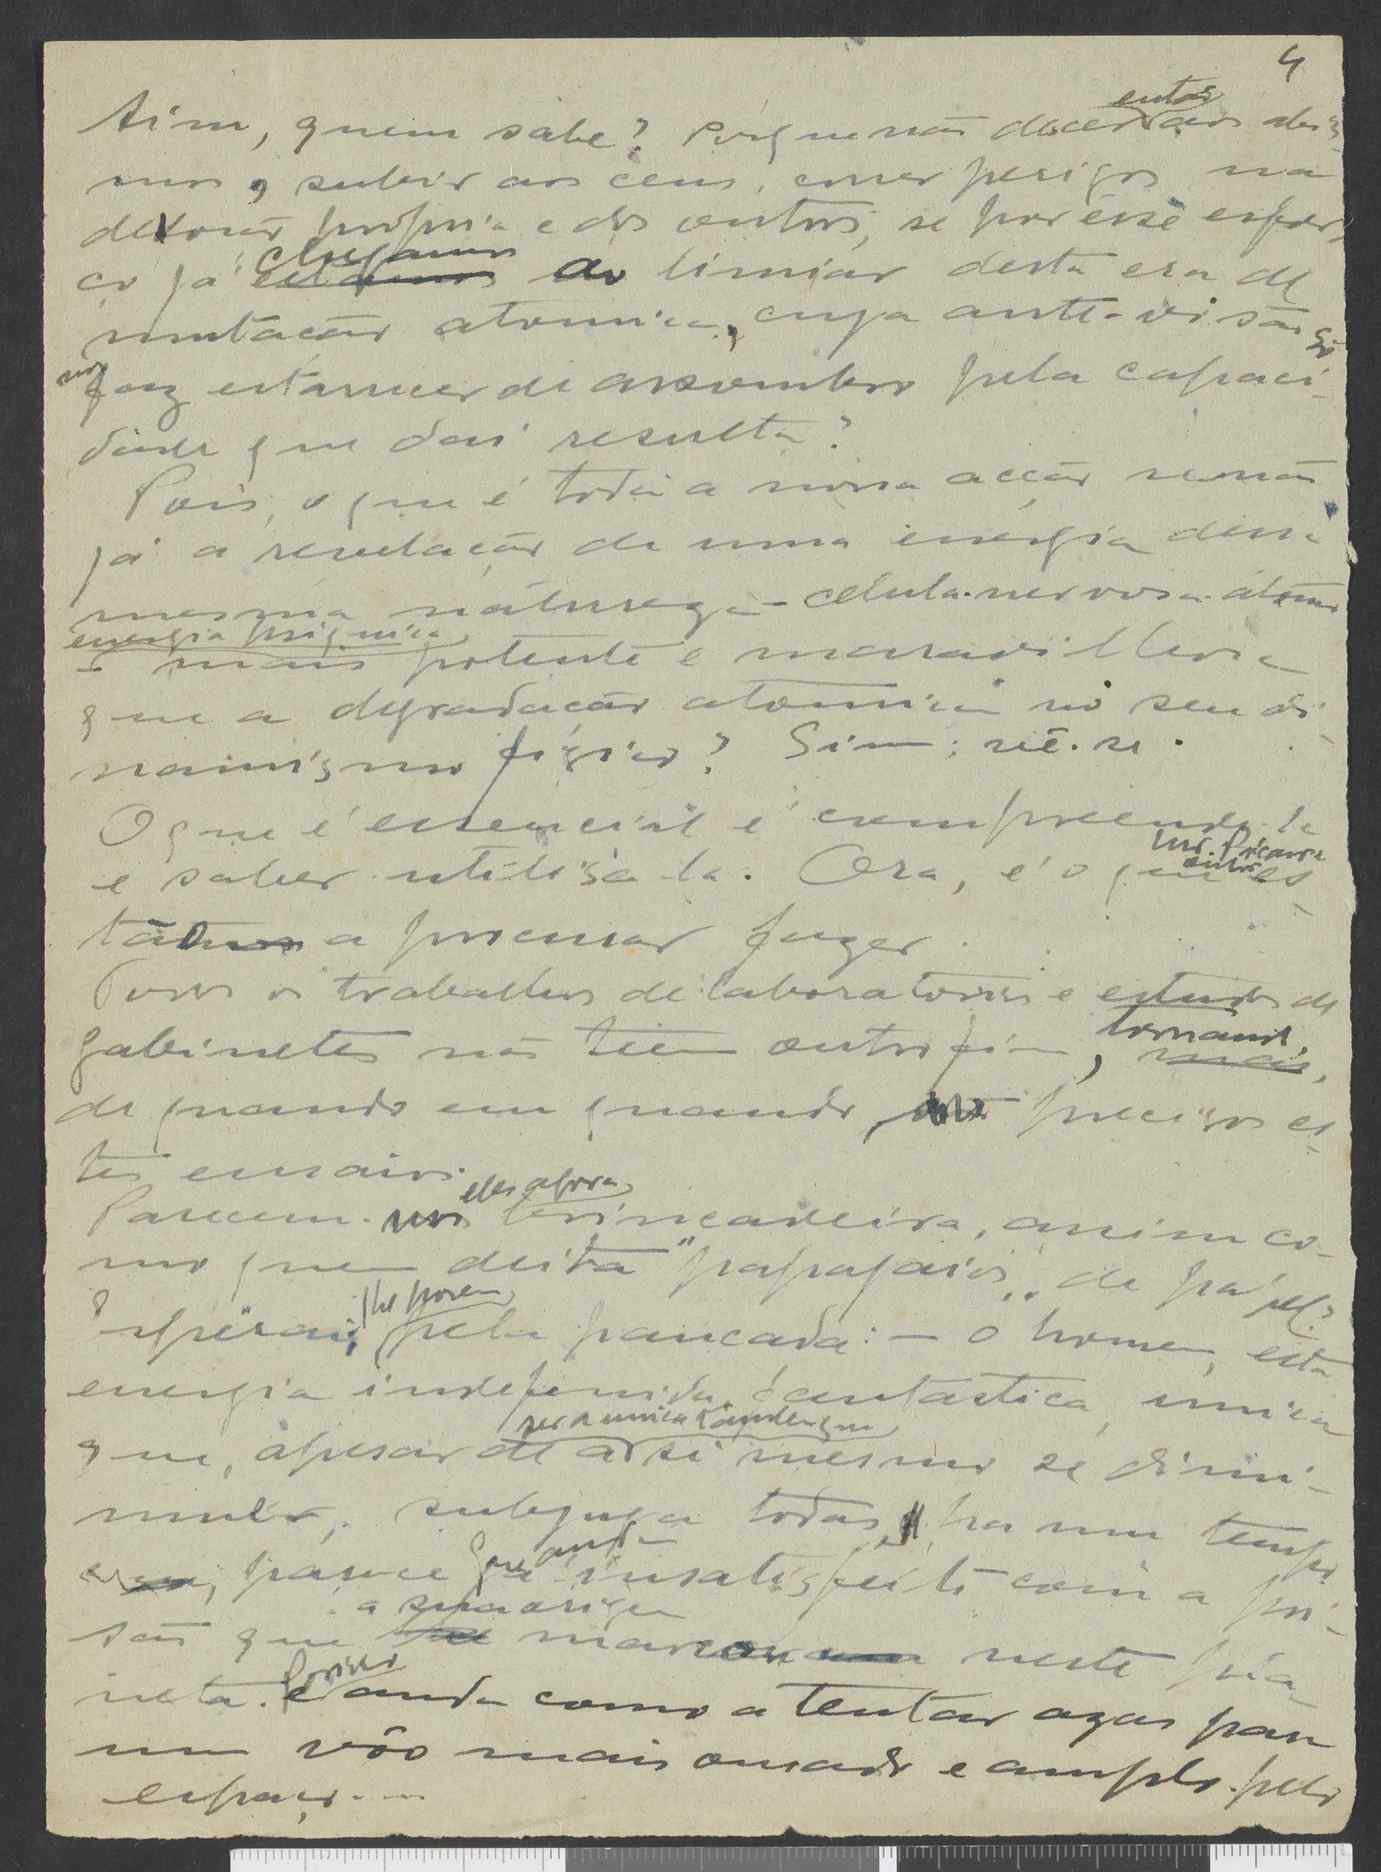 4
Sim, quem sabe? Porque não descer então aos abis-
mos, subir aos ceus, correr perigos na
própria e dos outros, se por esse esfor-
ço já chegamos ao limiar desta era de
mutação atomica, cuja ante-visão só
nos faz estarrecer de assombro pela capaci-
dade que daí resulta?
Pois, o que é toda a nossa acção senão
já a revelação de uma energia dessa
mesma natureza - celula-nervosa-átomo
energia psiquica
- mais potente e maravilhosa
que a degradação atomica no seu di-
namismo fisico? Sim; vê-se.
O que é essencial é compreende-la
e saber utilisa-la. Ora, é o que
entre es-
tão a procurar fazer.
Todos os trabalhos de laboratorios e estudos de
gabinetes não têem outro fim, tornando,
de quando em quando, precisos es-
tes ensaios.
Parecem-nos eles agora brincadeira, assim co-
mo quem deita "papagaios" de papel?
esperai-lhe porem pela pancada: - o homem, esta
energia indefenida, fantastica, unica
que, apesar de a si mesmo se dimi-
nuir, subjuga todas, ha um tempo
parece que anda insatisfeito com a pri-
são que a sua origem marcou neste pla-
neta. Por isso anda como a tentar azas para
um vôo mais ousado e amplo pelo
espaço...